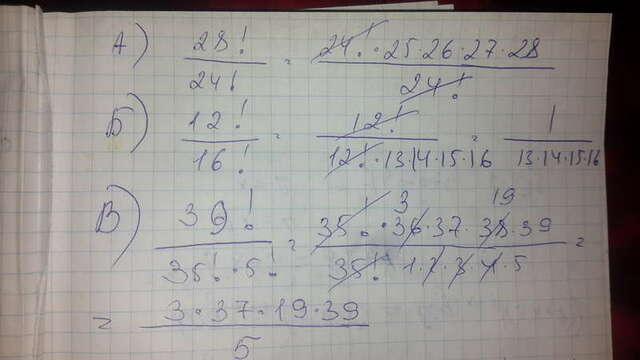 А) 28! / 24! = 24! · 25 · 26 · 27 · 28 / 24!
Б) 12! / 16! = 12! / 12! · 13 · 14 · 15 · 16 = 1 / 13 · 14 · 15 · 16
3 19
В) 39! / 35! · 5! = 35! · 36 · 37 · 38 · 39 / 35! 1 · 2 · 3 · 4 · 5 =
= 3 · 37 · 19 · 39 / 5